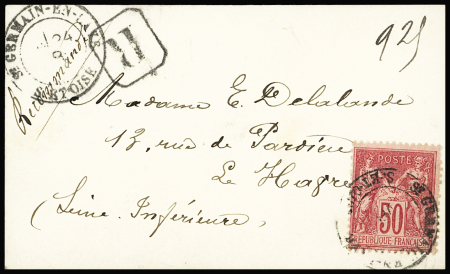 St GERMAIN-EN-LAYE
24
S-ET-OISE
R
925
Recommandé
Madame E. Delalande
13, rue de
Le Havre
(Seine-Inférieure)
POSTE
50
REPUBLIQUE FRANÇAISE
St GERM